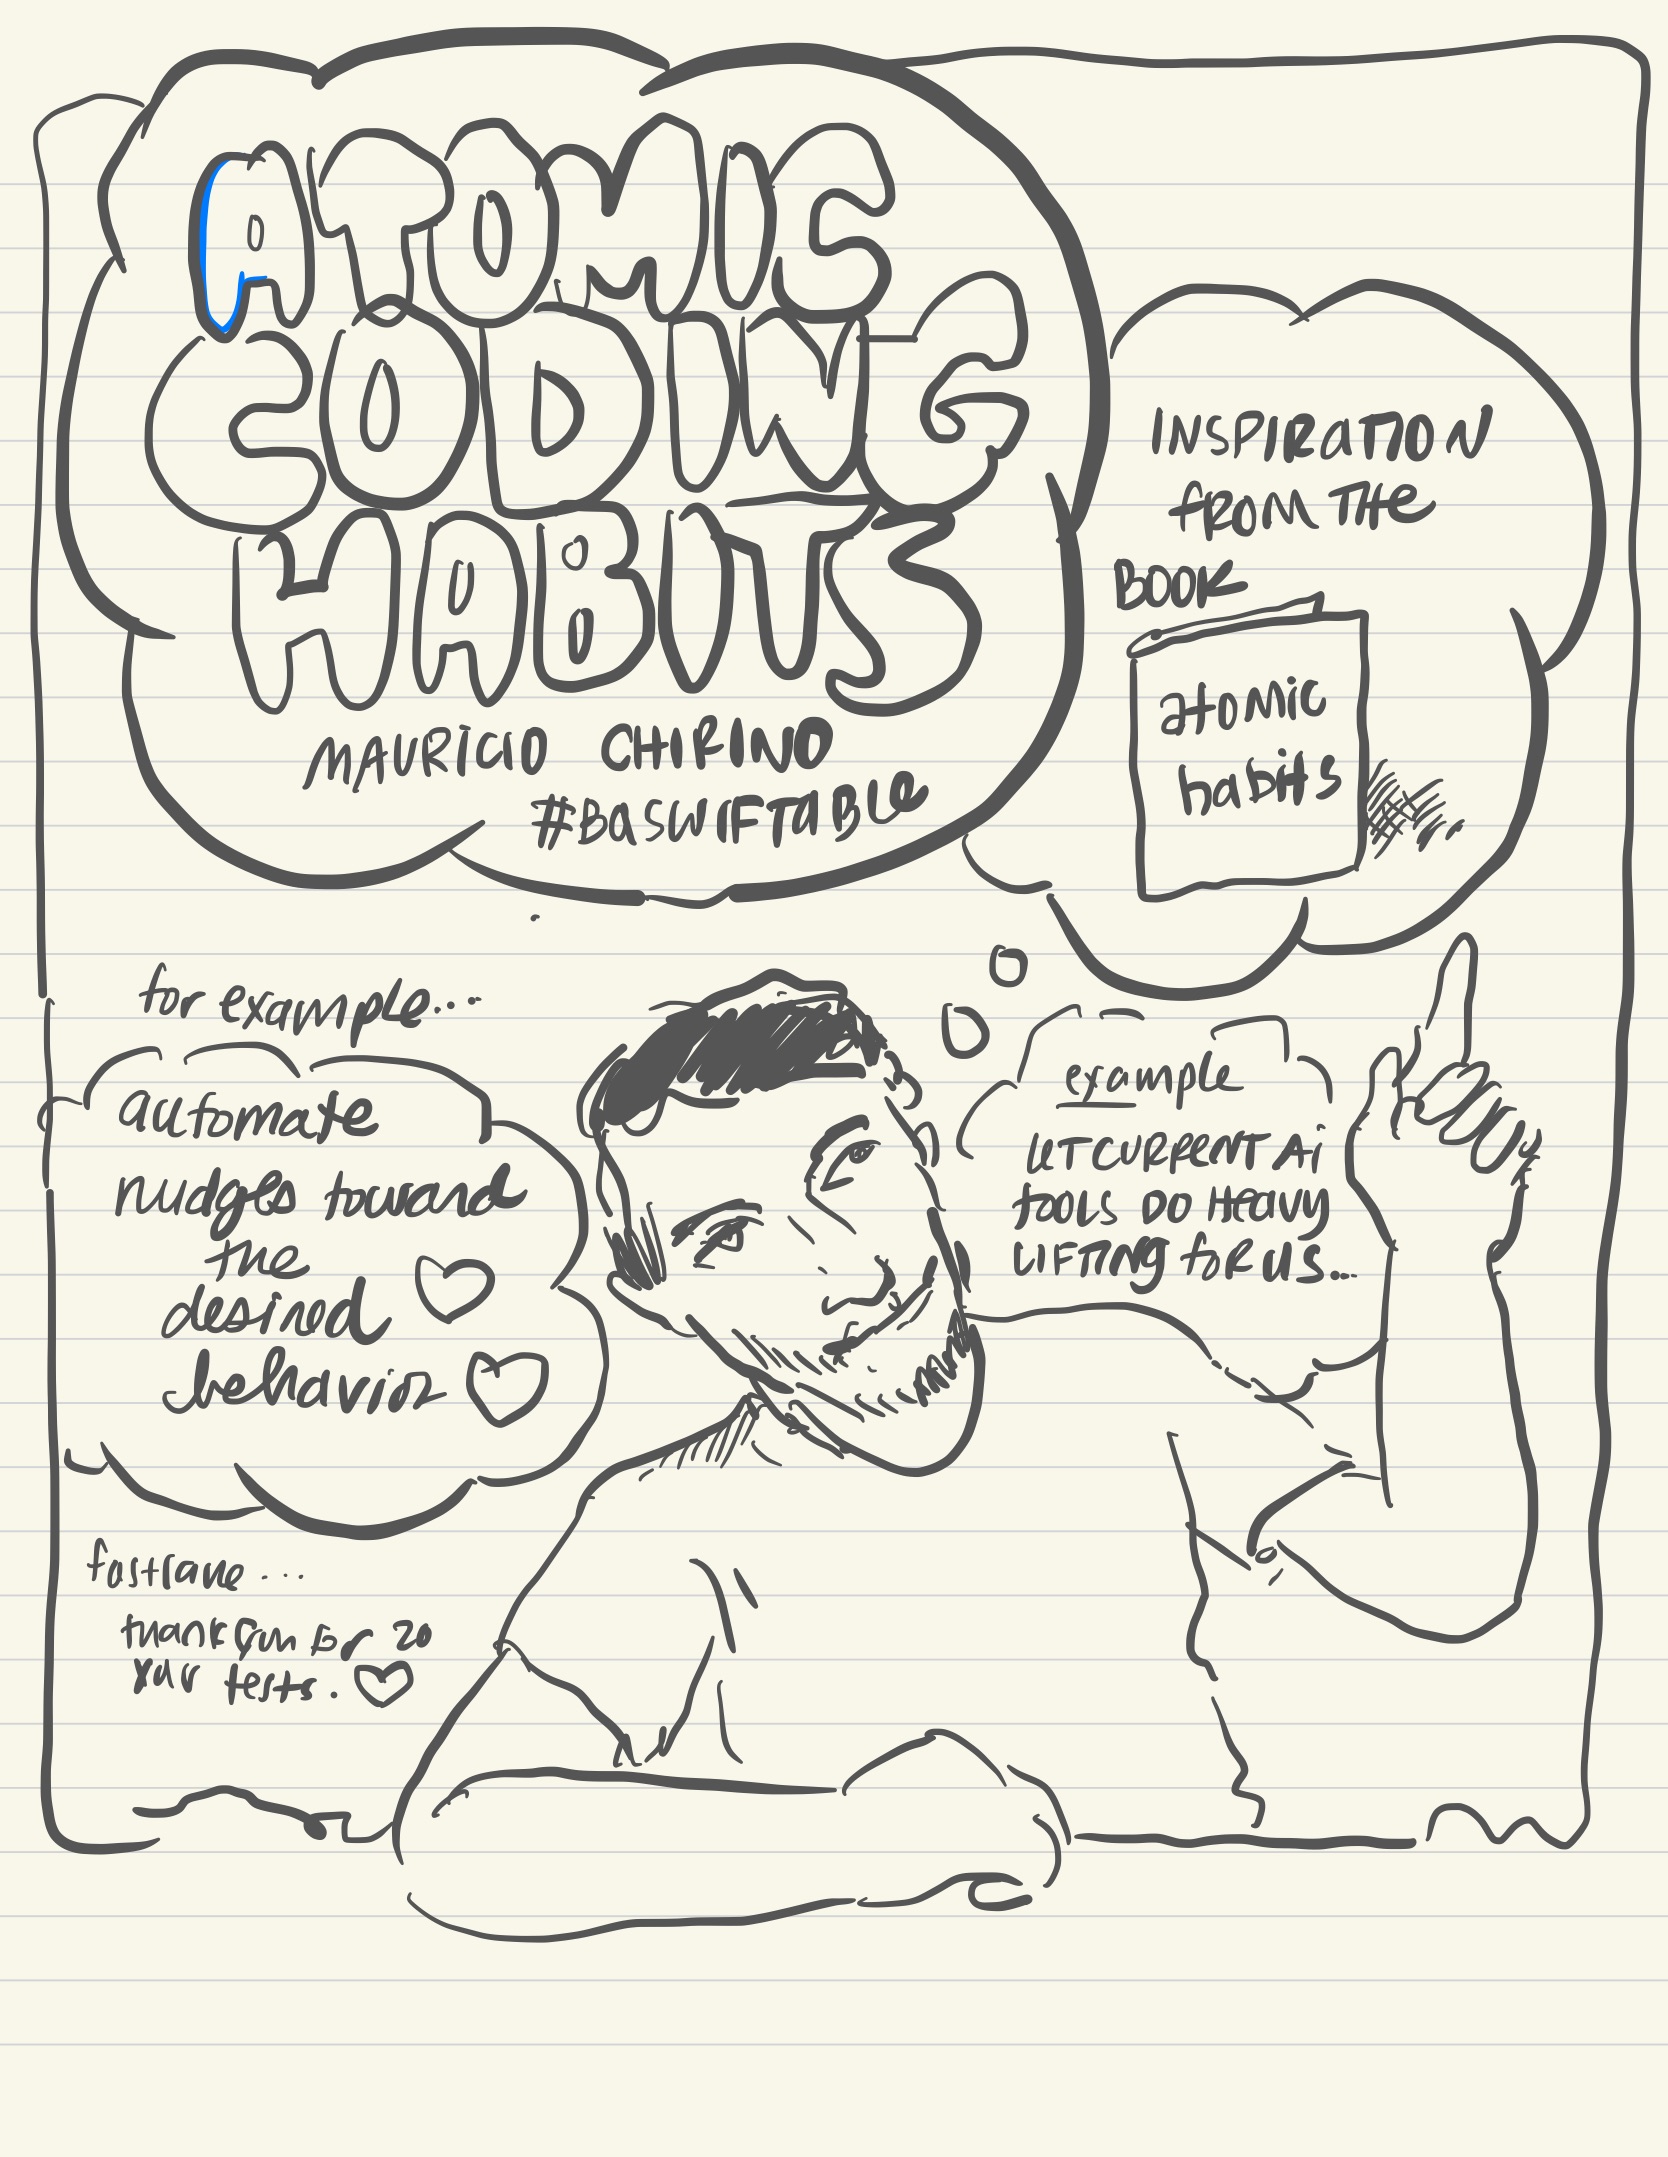 ATOMIC
CODING
HABITS
MAURICIO CHIRINO
#BASWIFTABLE
INSPIRATION
FROM THE
BOOK
atomic
habits
for example...
automate
nudges toward
the
desired
behavior
example
LET CURRENT AI
TOOLS DO HEAVY
LIFTING for US...
fastlane...
thank you for 20
your tests.